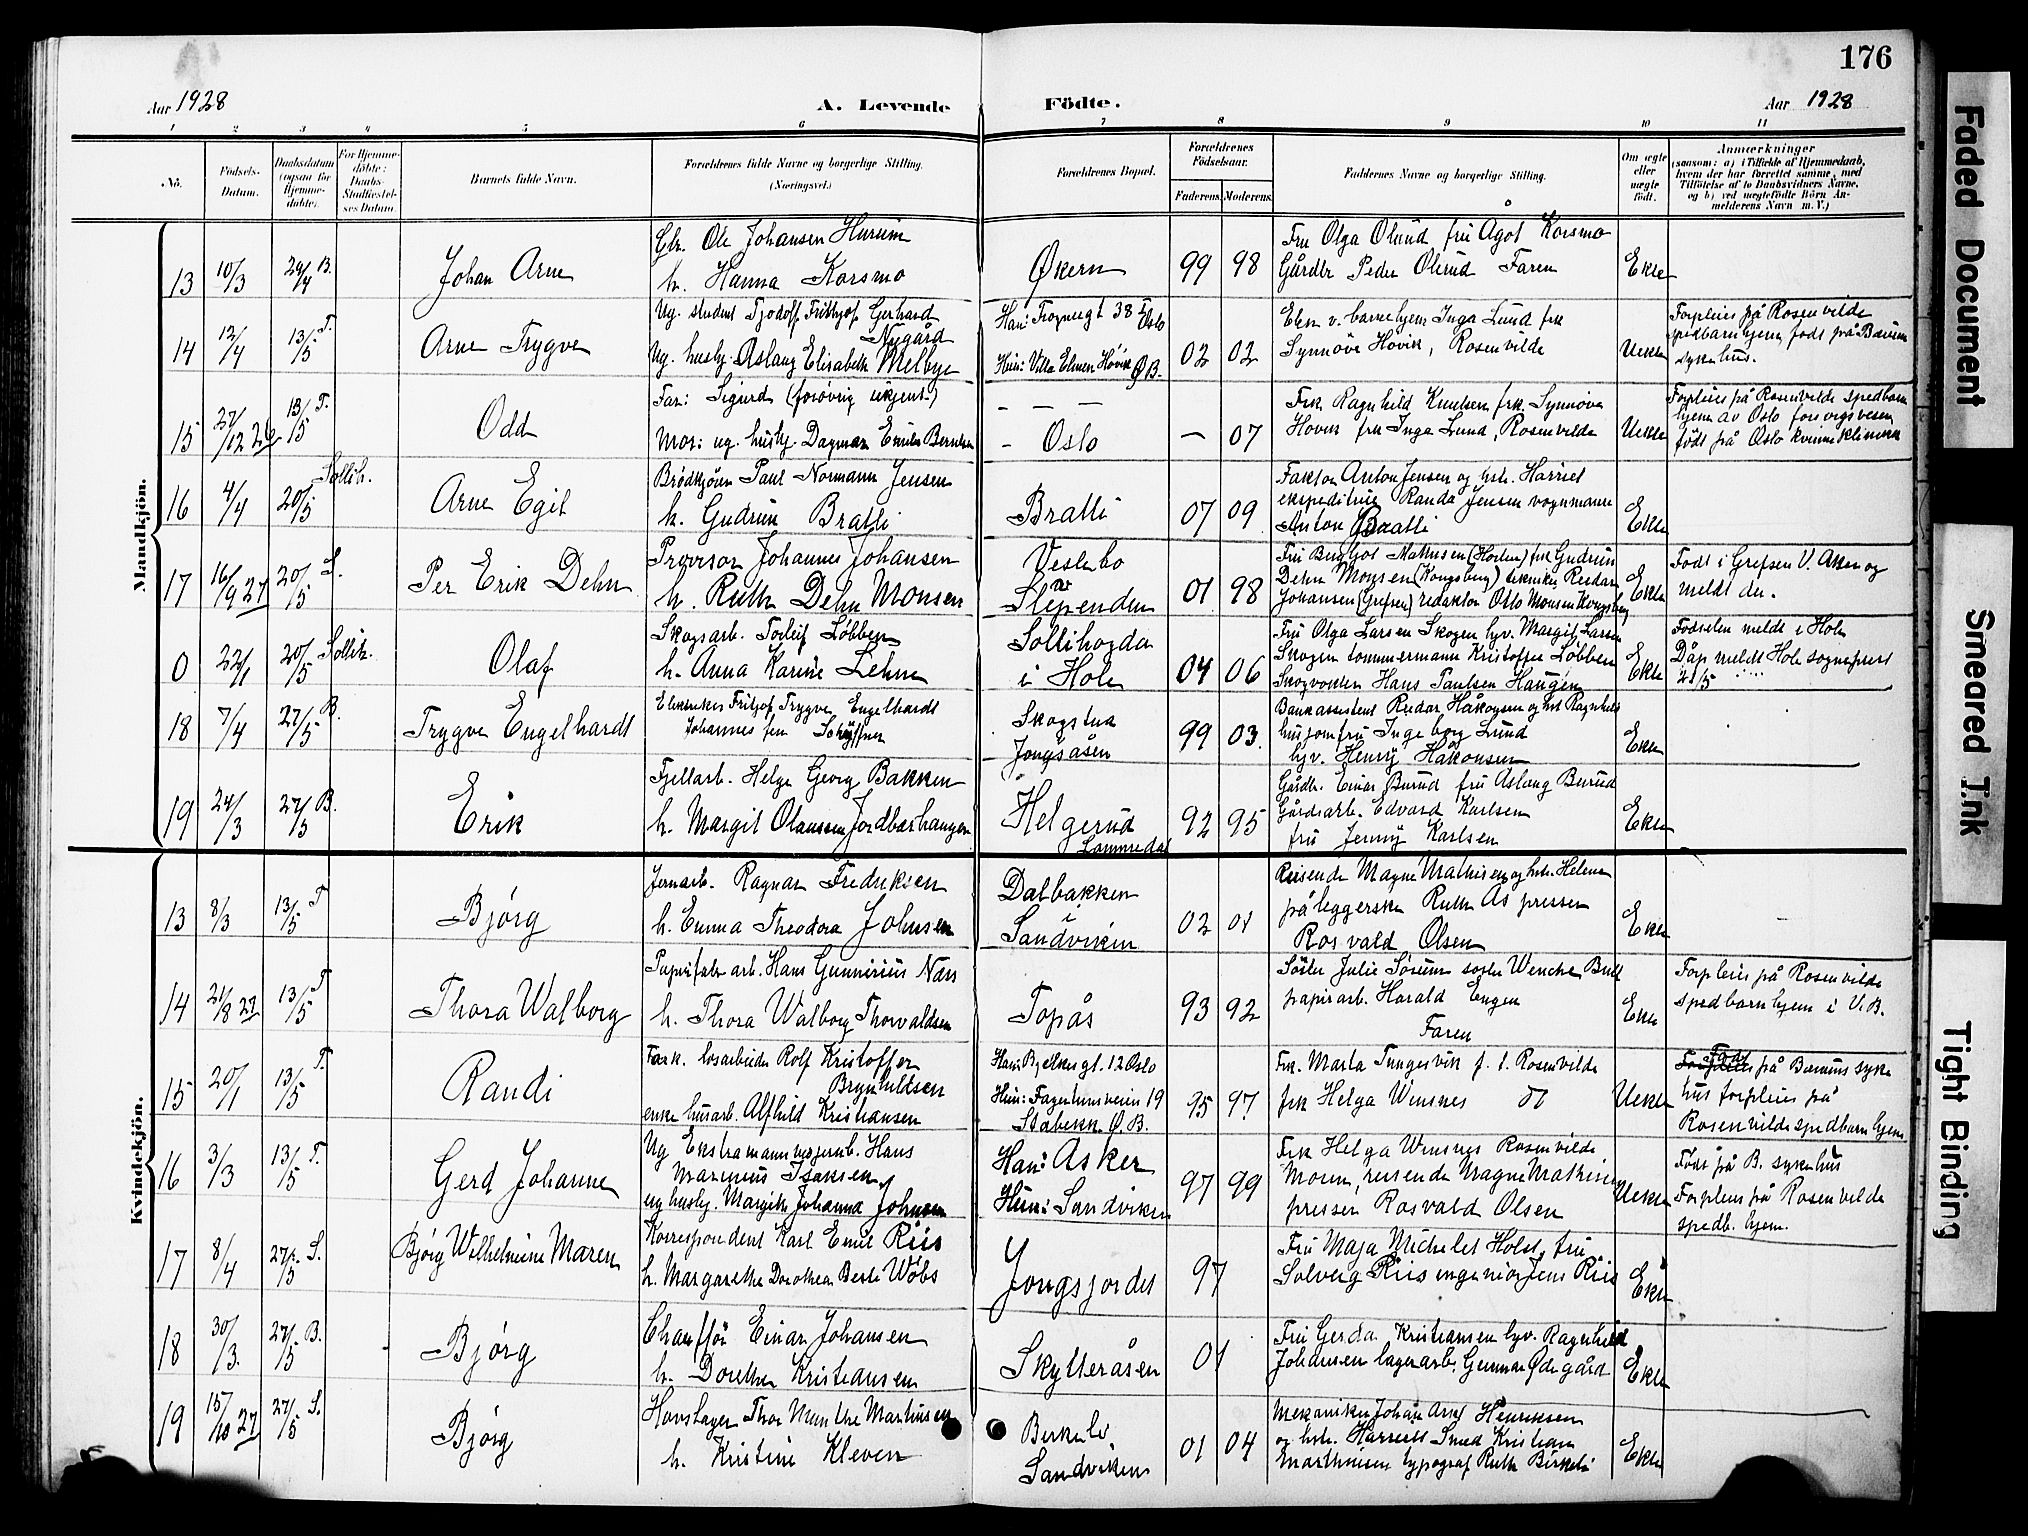 176
Aar 1928
A. Levende Födte.
Aar 1928
1 2 3 4 5 6 7 8 9 10 11
No.
Födsels-Datum.
Daabsdatum (ogsaa for Hjemme-döbte).
For Hjemme-döbte: Daabs-Stadfæstel-ses Datum.
Barnets fulde Navn.
Forældrenes fulde Navne og borgerlige Stilling.
(Næringsvei.)
Forældrenes Bopæl.
Forældrenes Födselsaar.
Faderens. Moderens.
Faddernes Navne og borgerlige Stilling.
Om ægte eller uægte födt.
Anmærkninger
(saasom: a) i Tilfælde af Hjemmedaab, hvem der har forrettet samme, med Tilföielse af to Daabsvidners Navne, og b) ved uægtefödte Börn An-melderens Navn m. V.)
Mandkjön.
13 10/3 29/4 B. Johan Arne
Gbr. Ole Johansen Hurum
h. Hanna Korsmo
Økern 99 98
Fru Olga Ølund fru Ågot Korsmo
Gårdbr Peder Ølerud Faren
Ekte
14 12/4 13/5 T. Arne Trygve
Ug. student Tjodolf Frithjof Gerhard
Nygård
Ug. husbg. Aslaug Elisabeth Melbye
Han: Frognergt 38 I Oslo
Hun: Villa Elmen Høvik Ø B.
02 02
v. barnehjem Inga Lund frk
Synnøve Høvik, Rosenvilde
Uekte
Forpleies på Rosenvilde
spedbarnhjem født på Bærum
sykehus.
15 27/12 13/5 T. Odd
Far: Sigurd (forøvrig ukjent)
Mor: ug. husbg. Dagmar Emilie Berntsen
- - -
- Oslo — 07
Frk Ragnhild Knutsen frk. Synnøve
Høvik frk Inga Lund, Rosenvilde
Uekte
Forpleies på Rosenvilde spedbarn
hjem av Oslo forsorgsvesen
født på Oslo kvinneklinikk
16 4/4 20/5 Sollih. Arne Egil
Brødkjører Paul Normann Jensen
h. Gudrun Bratli
Bratli 07 09
Faktor Anton Jensen og hstr. Harriet
ekspeditrise Randa Jensen vognmann
Anton Bratli
Ekte
17 16/9 27 20/5 S. Per Erik Dehn
Provisor Johannes Johansen
h. Ruth Dehn Monsen
Veslebo
Slependen 01 98
Fru Bergljot Mathisen (Horten) frk Gudrun
Dehn Monsen (Kongsberg) tekniker Reidar
Johansen (Grefsen) redaktør Otto Monsen Kongsberg
Ekte
Født i Grefsen V. Aker og
meldt der.
0 22/1 20/5 Sollih. Olaf
Skogsarb. Torleif Løbben
h. Anna Karine Lehne
Sollihøgda
i Hole 04 06
Fru Olga Larsen Skogen hgv. Margit Larsen
Skogen tømmermann Kristoffer Løbben
Skogvokter Hans Paulsen Haugen
Ekte
Fødselen meldt i Hole
Dåp meldt Hole sogneprest
21/5
18 7/4 27/5 B. Trygve Engelhardt
Elektriker Fritjof Trygve Engelhardt
Johannes fen Schyffner
Skogstua
Jongsåsen 99 03
Bankassistent Reidar Håkonsen og hst Ragnhild
husjomfru Ingeborg Lund
hgv. Henry Håkonsen
Ekte
19 24/3 27/5 B. Erik
Fjellarb. Helge Georg Bakken
h. Margit Olaussen Jordbærhaugen
Helgerud
Lommedal 92 95
Gårdbr. Einar Burud fru Aslaug Burud
Gårdsarb. Edvard Karlsen
fru Jenny Karlsen
Ekte
Kvindekjön.
13 8/3 13/5 T Bjørg
Jernarb. Ragnar Fredriksen
h. Emma Theodora Johnsen
Dalbakken
i
Sandviken 02 01
Reisende Magne Mathisen og hstr. Helene
påleggerske Ruth Ås presser
Rosvald Olsen
Ekte
14 21/8 27 13/5 T Thora Walborg
Papirfabr arb. Hans Gunnerius Næss
h. Thora Walborg Thorvaldsen
Topås 93 92
Søster Julie Sørum søster Wenche Bull
papirarb. Harald Engen
Faren
Ekte
Forpleies på Rosenvilde
spedbarnhjem i V. B.
15 20/1 13/5 T. Randi
Frask. losarbeider Rolf Kristoffer
Brynhildsen
enke husarb. Alfhild Kristiansen
Han: Bjelkesgt. 12 Oslo
Hun: Fagerhøisveien 19
Stabekk Ø. B. 95 97
Frk. Marta Tungesvik f. t. Rosenvilde
frk Helga Wensnes do
Uekte
Forpleies Født på Bærums syke
hus forpleies på
Rosenvilde spedbarnhjem
16 3/3 13/5 T. Gerd Johanne
Ug Ekstramann vegarb. Hans
Marinius Isaksen
ug husbg. Margit Johanna Johnsen
Han: Asker
Hun: Sandviken 97 99
Frk Helga Wensnes Rosenvilde
Moren, reisende Magne Mathisen
presser Rosvald Olsen
Uekte
Født på B. sykehus
Forpleies på Rosenvilde
spedb. hjem.
17 8/4 27/5 S. Bjørg Wilhelmine Maren
Korrespondent Karl Emil Riis
h. Margarethe Dorothea Berta Wöbs
Jongsjordet 97
Fru Maja Michelet Holst, fru
Solveig Riis ingeniør Jens Riis
Ekte
18 30/3. 27/5 B. Bjørg
Chauffør Einar Johansen
h. Dorethea Kristiansen
Skytteråsen 01
Fru Gerda Kristiansen hgv. Ragnhild
Johansen lagerarb. Gunnar Ødegård
Ekte
19 15/10 27 27/5 S. Bjørg
Hovslager Thor Munthe Marthinsen
h. Kristine Kleven
Birkeli
Sandviken 01 04
Mekaniker Johan Arnt Henriksen
og hstr. Harriett Smed Kristian
Marthinsen typograf Ruth Birkeli
Ekte
Faded Document
Smeared Ink
Tight Binding